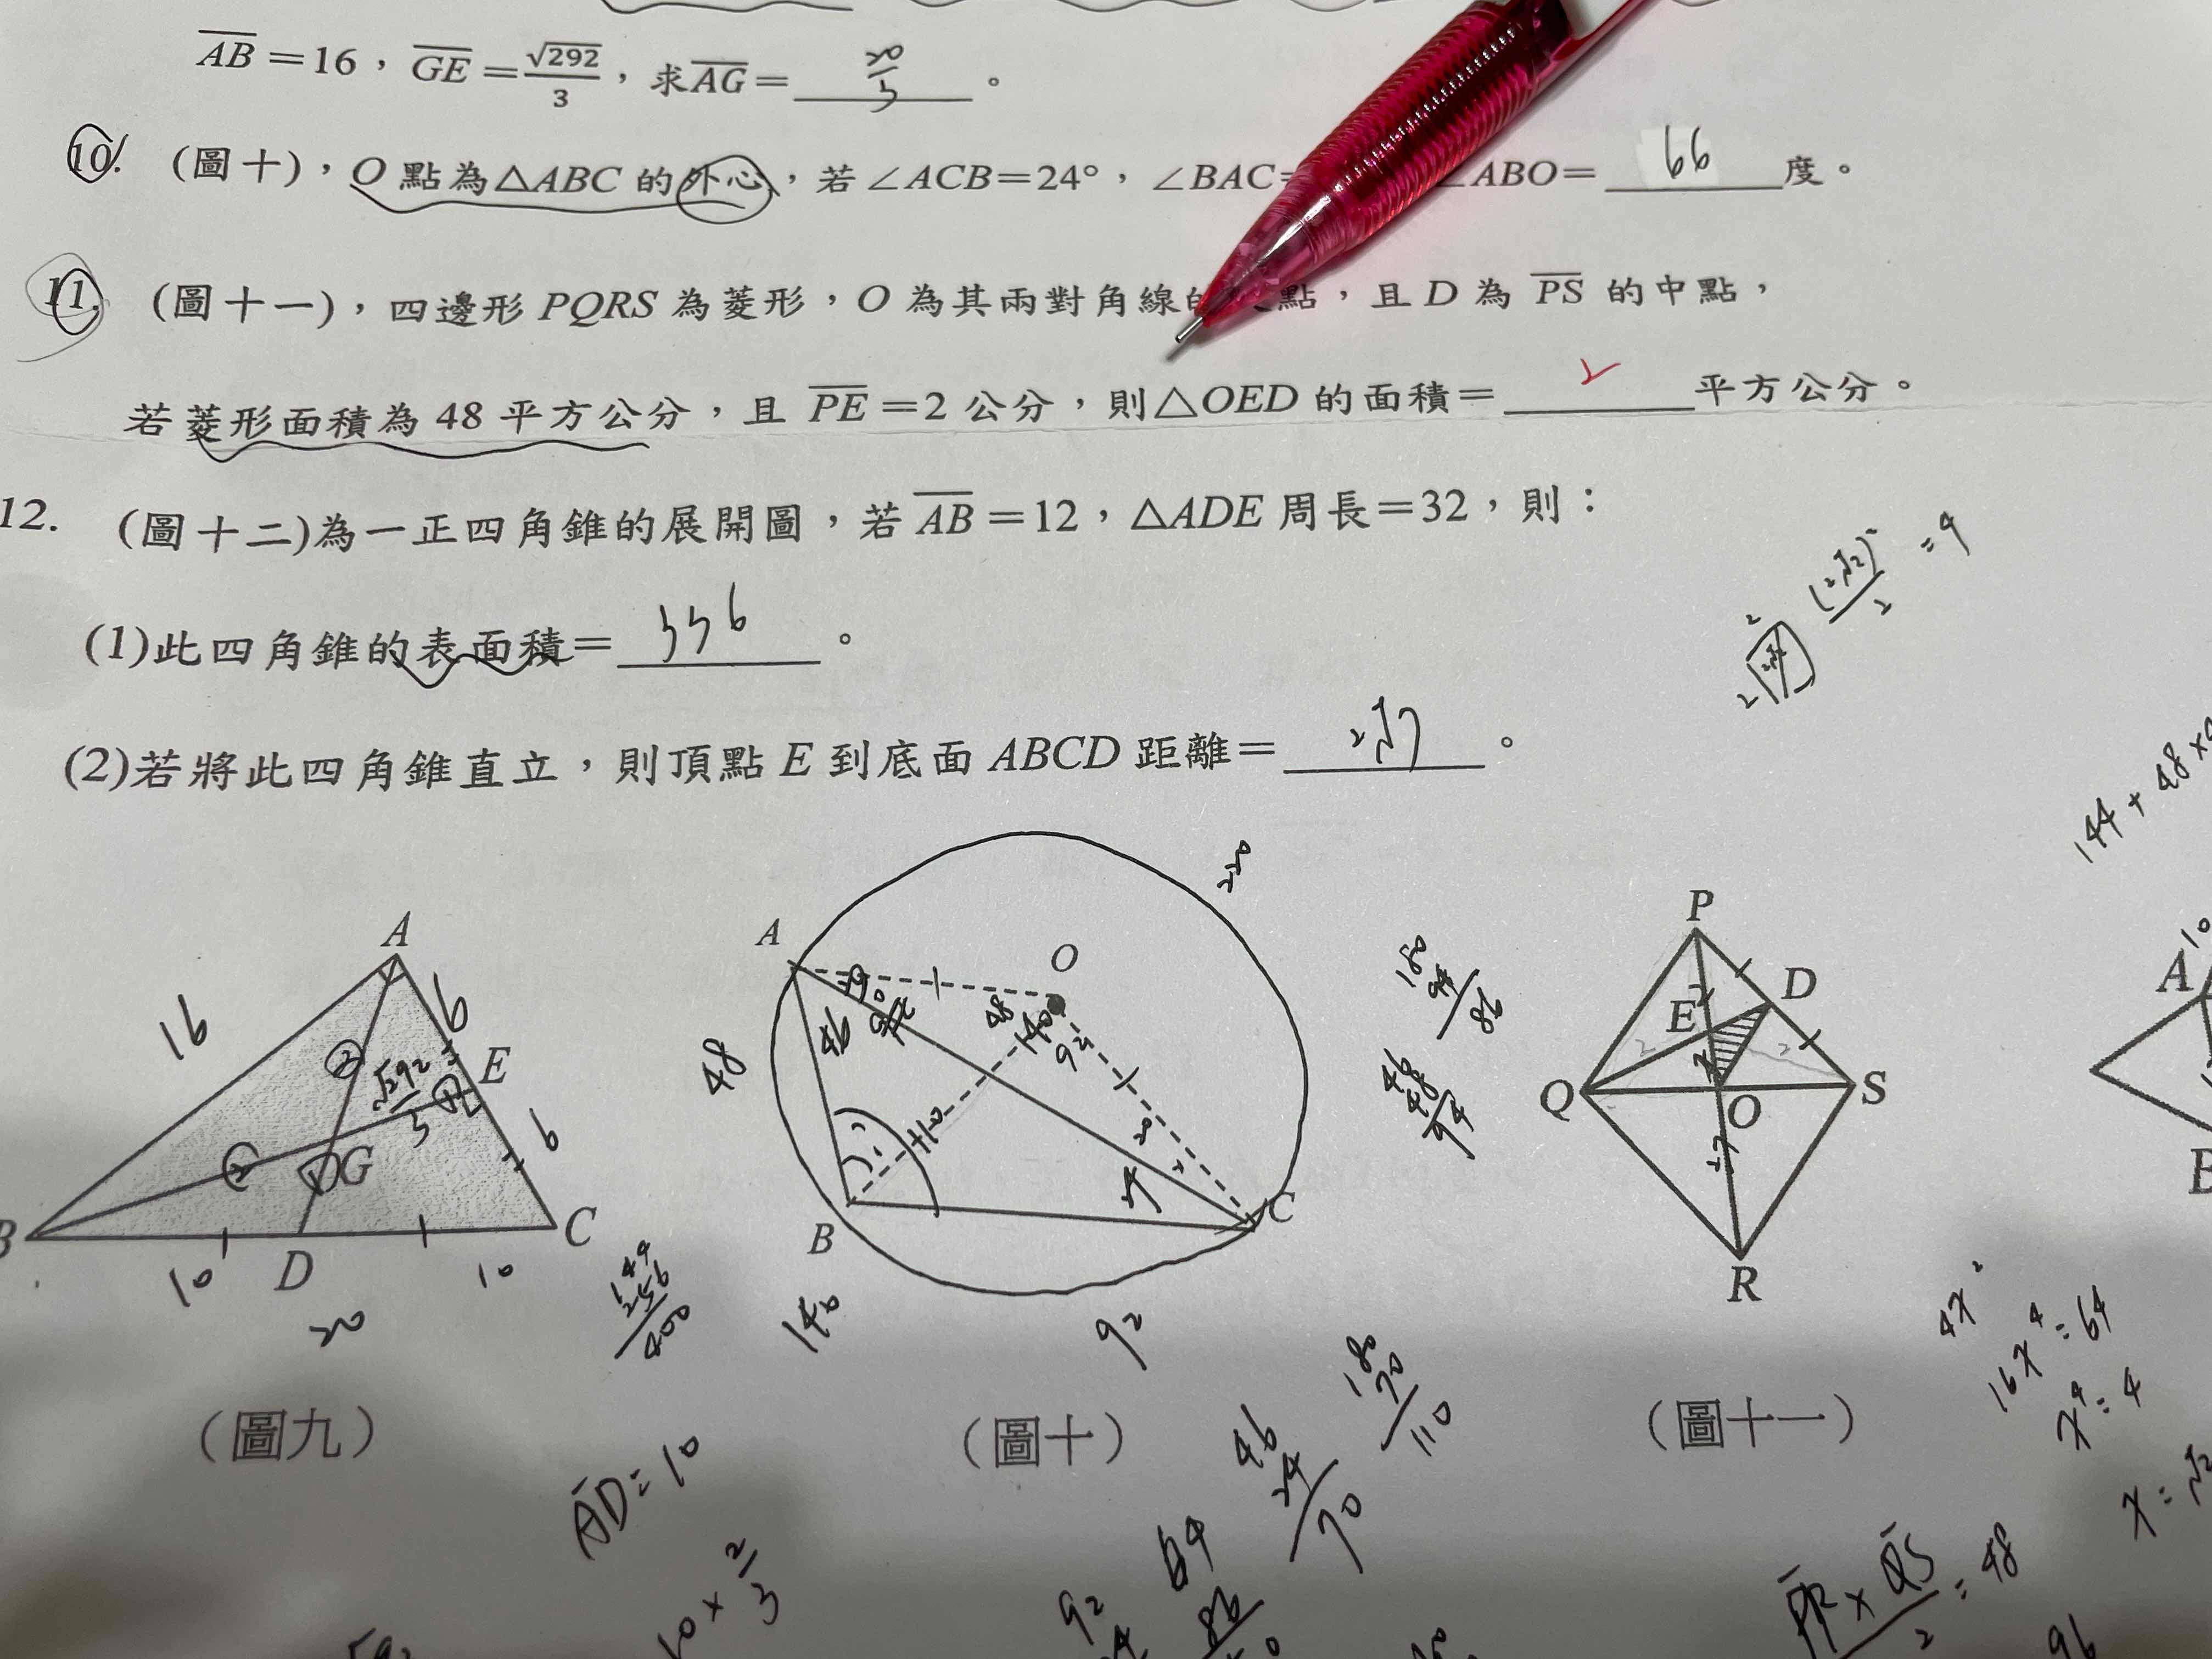 AB=16，GE=√292/3，求AG=20/3。
10. (圖十)，O點為△ABC的外心，若∠ACB=24°，∠BAC= ∠ABO=66度。
11. (圖十一)，四邊形PQRS為菱形，O為其兩對角線的 點，且D為PS的中點，
若菱形面積為48平方公分，且PE=2公分，則△OED的面積=平方公分。
12. (圖十二)為一正四角錐的展開圖，若AB=12，△ADE周長=32，則：
(1)此四角錐的表面積=336。
(2√2)²/2=4
(2)若將此四角錐直立，則頂點E到底面ABCD距離=2√7。
144+48×
A
16
6
E
√292/3
6
G
B
D
C
10
10
20
(圖九)
A
O
B
C
48
46
140
92
24
(圖十)
180
94
86
46
48
94
P
D
E
Q
O
S
R
(圖十一)
A
10
B
144
256
400
4x²
16x⁴=64
x⁴=4
x=√2
AD=10
10×2/3
46
24
70
180
70
110
64
86
92
PR×QS/2=48
96